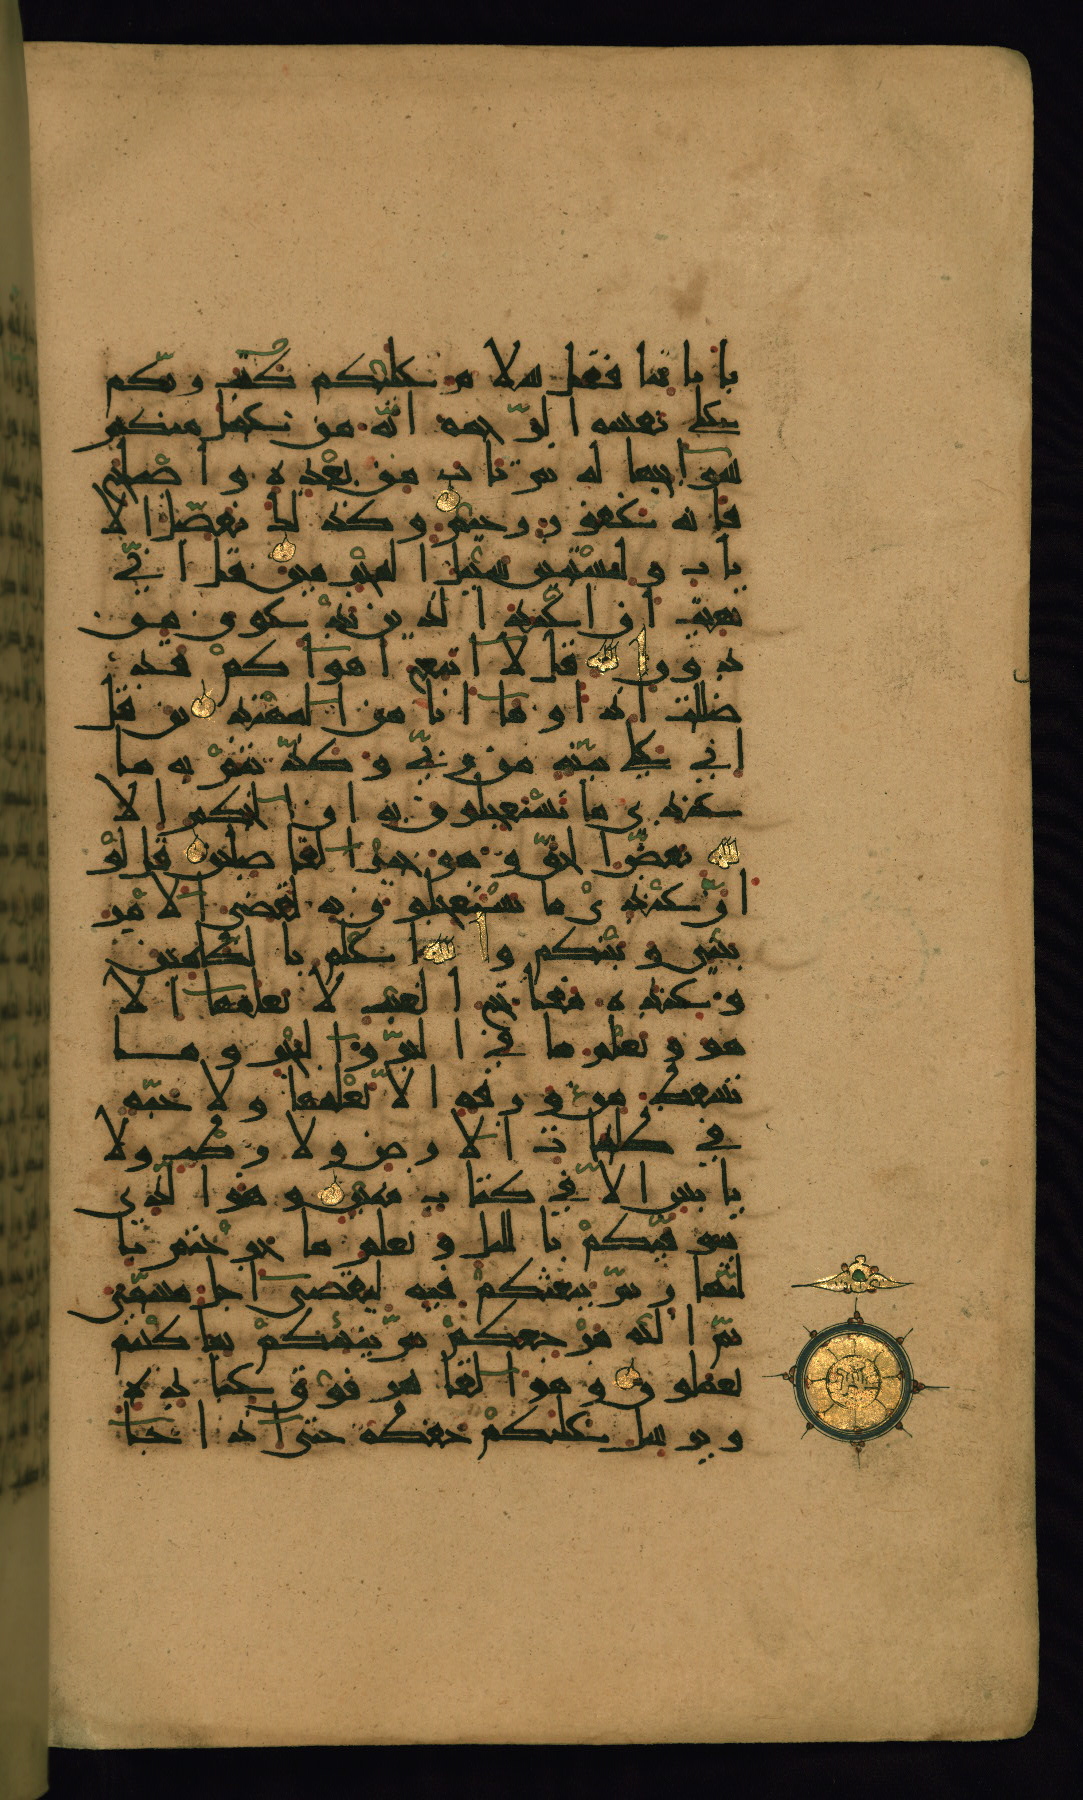 باياتنا فقل سلام عليكم كتب ربكم
على نفسه الرحمة انه من عمل منكم
سوا بجهالة ثم تاب من بعده واصلح
فانه غفور رحيم وكذلك نفصل الا
يات ولتستبين سبيل المجرمين قل اني
نهيت ان اعبد الذين تدعون من
دون الله قل لا اتبع اهواكم قد
ضللت اذا وما انا من المهتدين قل
اني على بينة من ربي وكذبتم به ما
عندي ما تستعجلون به ان الحكم الا
لله يقض الحق وهو خير الفاصلين قل لو
ان عندي ما تستعجلون به لقضي الامر
بيني وبينكم والله اعلم بالظلمين
وعنده مفاتح الغيب لا يعلمها الا
هو ويعلم ما في البر والبحر وما
تسقط من ورقة الا يعلمها ولا حبة
في ظلمات الارض ولا رطب ولا
يابس الا في كتاب مبين وهو الذي
يتوفيكم بالليل ويعلم ما جرحتم با
لنهار ثم يبعثكم فيه ليقضى اجل مسمى
ثم اليه مرجعكم ثم ينبئكم بما كنتم
تعملون وهو القاهر فوق عباده
ويرسل عليكم حفظة حتى اذا جا